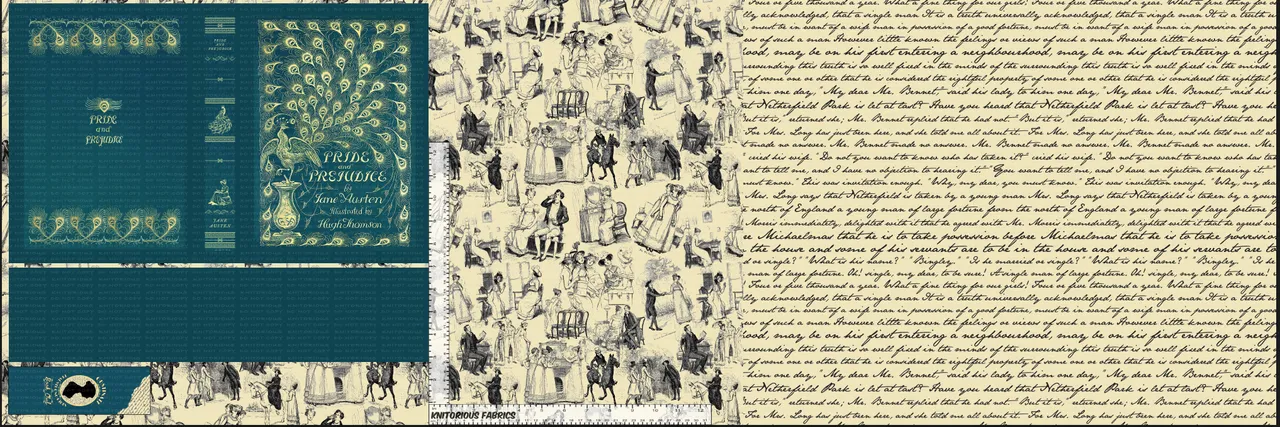 PRIDE
and
PREJUDICE
PRIDE
AND
PREJUDICE
JANE
AUSTEN
PRIDE
and
PREJUDICE
by
Jane Austen
Illustrated by
Hugh Thomson
KNITORIOUS FABRICS
Four or five thousand a year. What a fine thing for our girls! Four or five thousand a year.
acknowledged, that a single man It is a truth universally acknowledged, that a single man
must be in want of a wife man in possession of a good fortune, must be in want of a wife
of such a man However little known the feelings or views of such a man However little known the feeling
may be on his first entering a neighbourhood, may be on his first entering a
surrounding this truth is so well fixed in the minds of the surrounding this truth is so well fixed in the minds
of some one or other that he is considered the rightful property of some one or other that he is considered the rightful
him one day, "My dear Mr. Bennet" said his lady to him one day, "My dear Mr. Bennet"
at Netherfield Park is let at last? Have you heard that Netherfield Park is let at last? Have you
But it is, returned she; Mr. Bennet replied that he had not. But it is, returned she;
For Mrs. Long has just been here, and she told me all about it. For Mrs. Long has just been here, and she
made no answer. Mr. Bennet made no answer. Mr. Bennet made no answer.
cried his wife. "Do not you want to know who has taken it?" cried his wife.
want to tell me, and I have no objection to hearing it." "You want to tell me, and I have no
must know. This was invitation enough. "Why, my dear, you must know. This was invitation enough. "Why, my
Mrs. Long says that Netherfield is taken by a young man Mrs. Long says that Netherfield is taken
north of England a young man of large fortune from the north of England a young man of large
Morris immediately, delighted with it that he agreed with Mr. Morris immediately, delighted with it that he agreed
Michaelmas that he is to take possession before Michaelmas that he is to take
the house and some of his servants are to be in the house and some of his servants are to
or single?" "What is his name?" "Bingley." "Is he married or single?" "What is his name?" "Bingley." "Is he
man of large fortune. Oh! single, my dear, to be sure! A single man of large fortune. Oh! single, my dear, to be sure!
Four or five thousand a year. What a fine thing for our girls! Four or five thousand a year.
acknowledged, that a single man It is a truth universally acknowledged, that a single man
must be in want of a wife man in possession of a good fortune, must be in want of a wife
of such a man However little known the feelings or views of such a man However little known the feeling
may be on his first entering a neighbourhood, may be on his first entering a
surrounding this truth is so well fixed in the minds of the surrounding this truth is so well fixed in the minds
of some one or other that he is considered the rightful property of some one or other that he is considered the rightful
him one day, "My dear Mr. Bennet" said his lady to him one day, "My dear Mr. Bennet"
at Netherfield Park is let at last? Have you heard that Netherfield Park is let at last? Have you
But it is, returned she; Mr. Bennet replied that he had not. But it is, returned she;
For Mrs. Long has just been here, and she told me all about it. For Mrs. Long has just been here